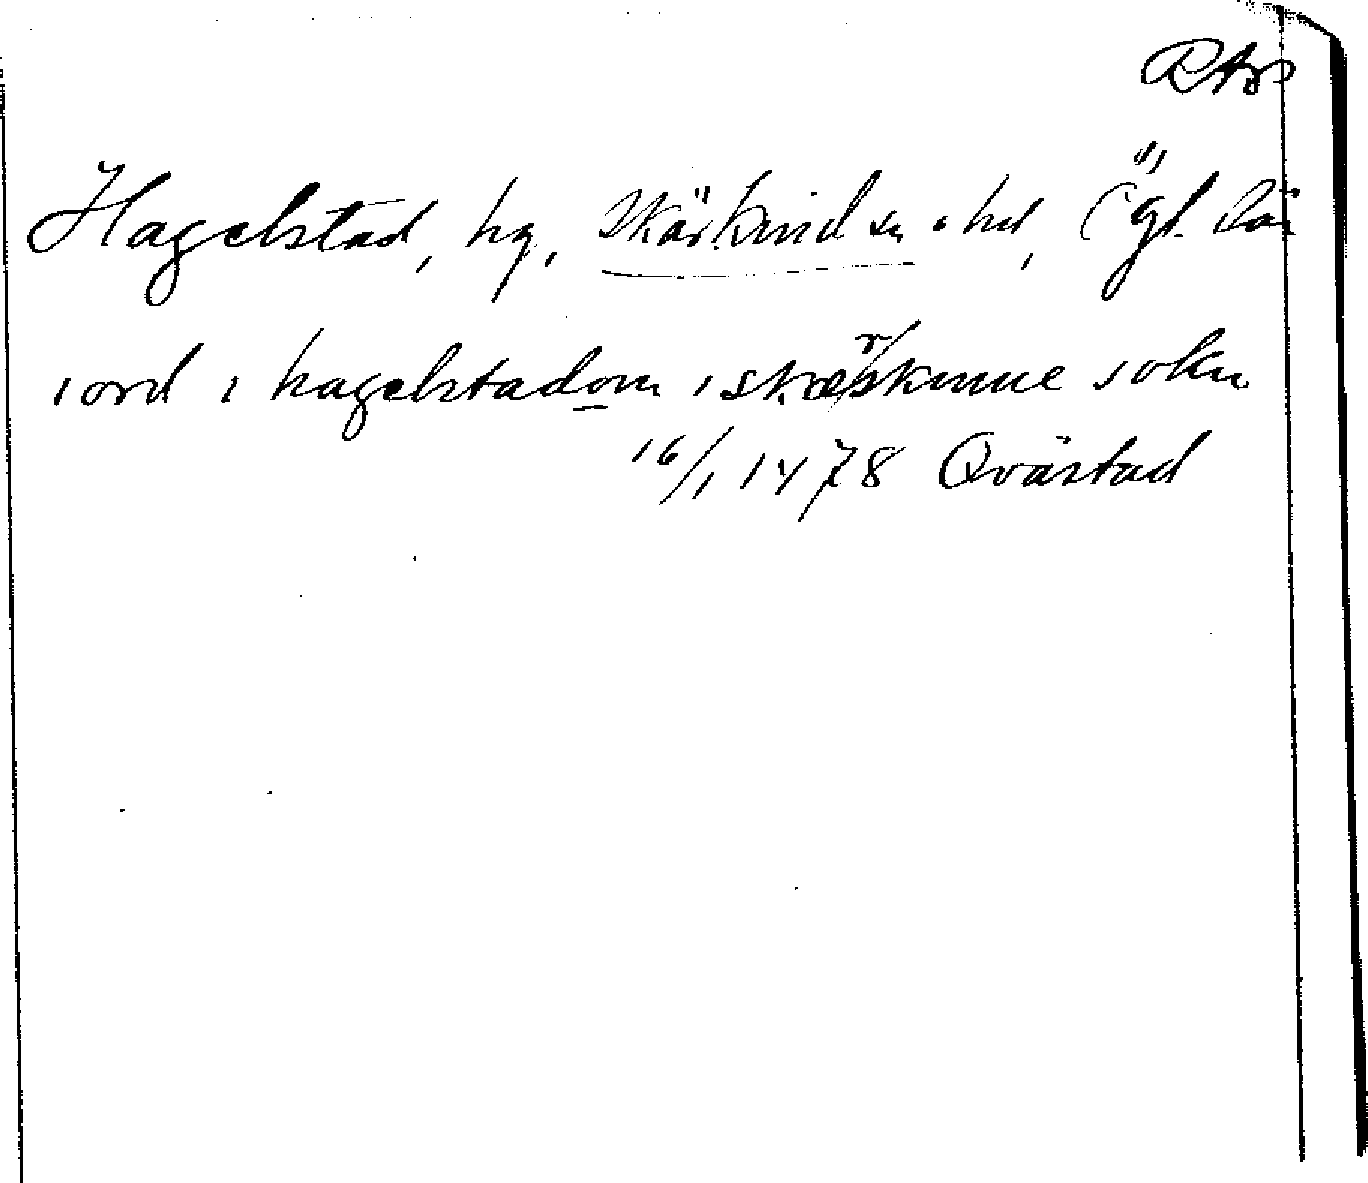 RAp
Hagelstad, hg, Skärkind sn o hd, Ögl. Län
iord i hagelstadom i skærskinne sokn
16/1 1478 Qvästad